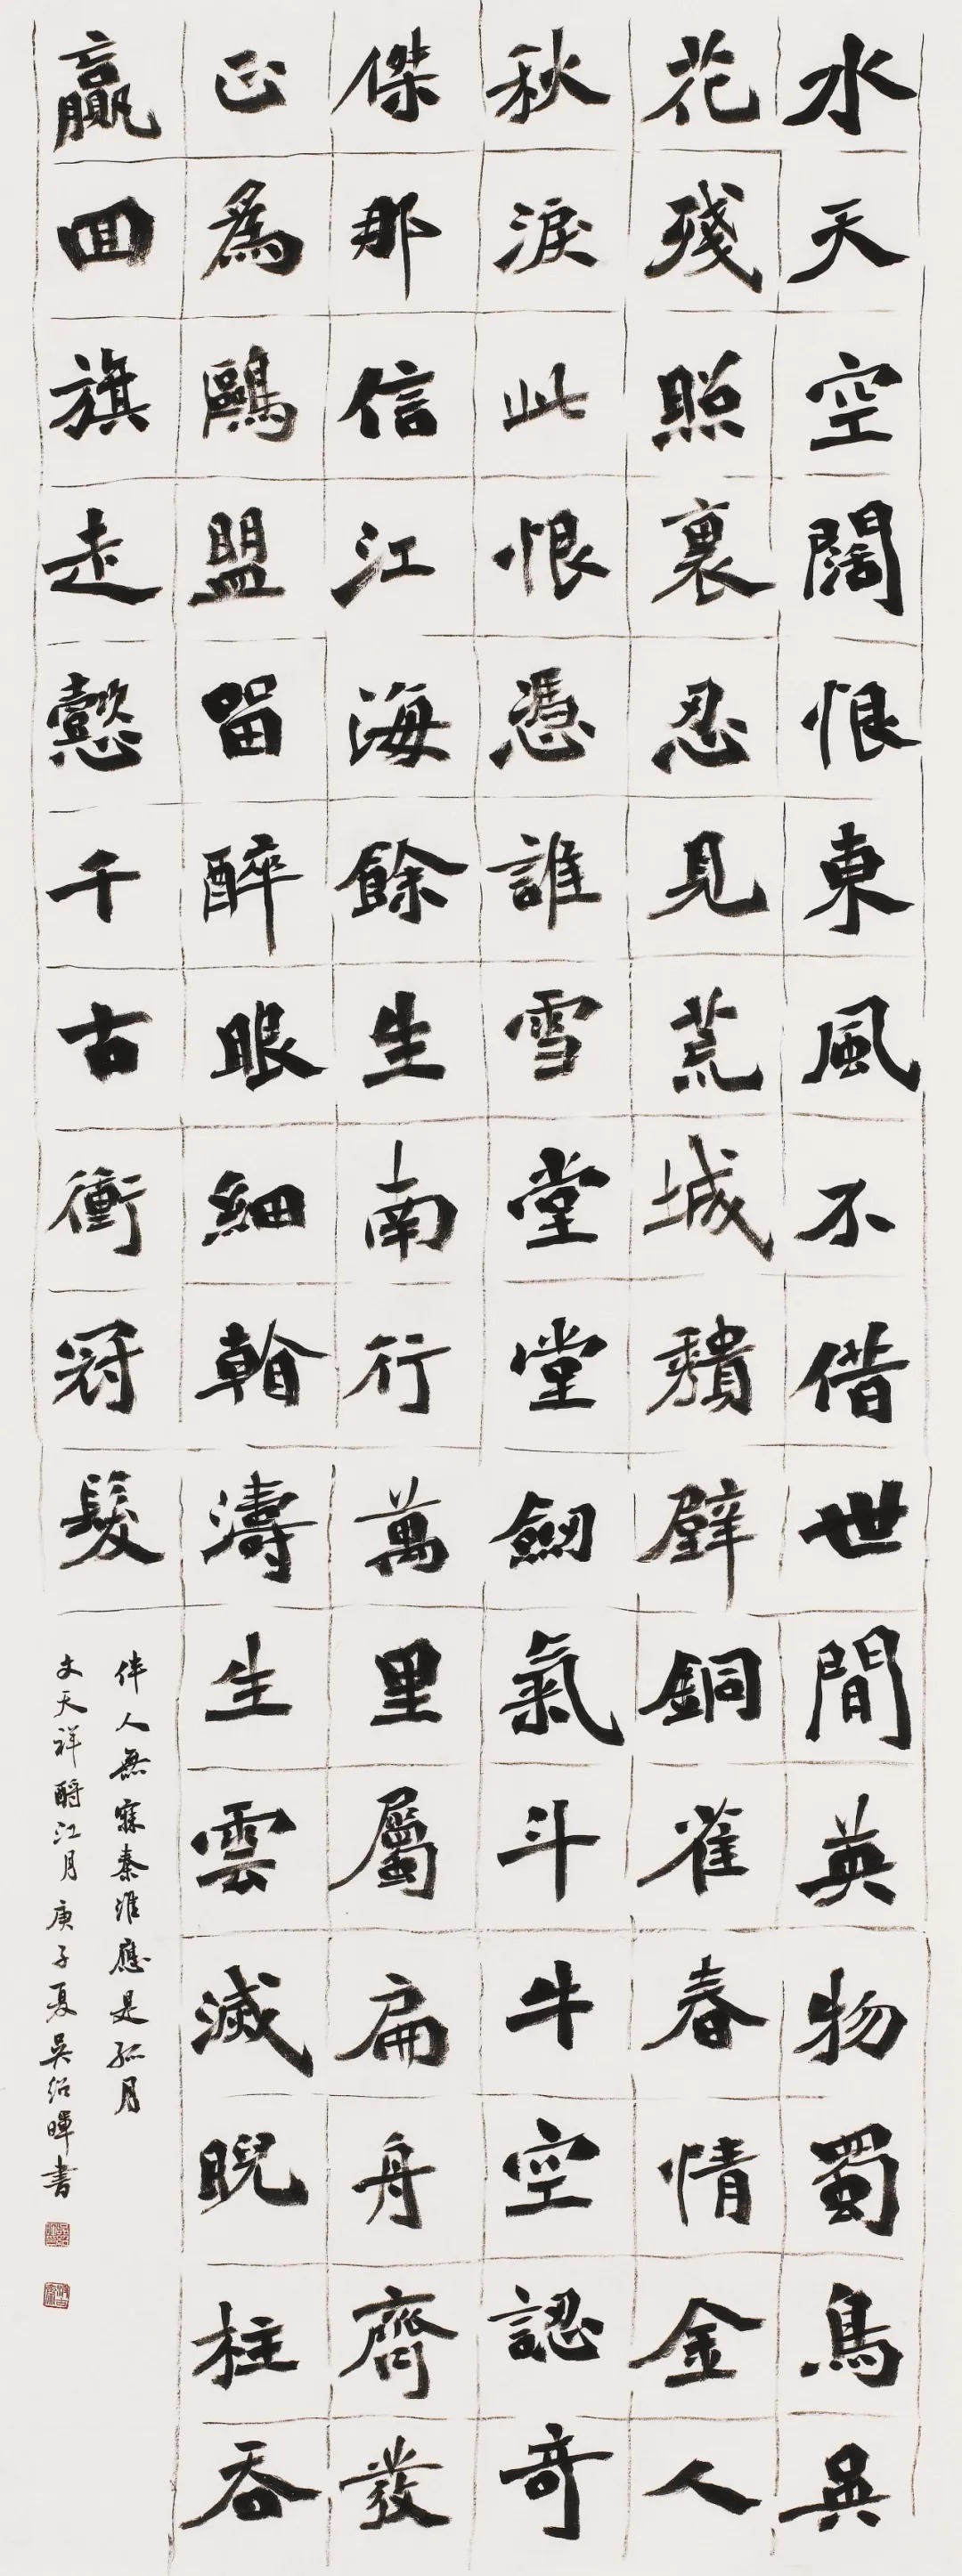 水天空闊恨東風不借世間英物蜀鳥吳
花殘照裏忍見荒城頹壁銅雀春情金人
秋淚此恨憑誰雪堂堂劒氣斗牛空認奇
傑那信江海餘生南行萬里屬扁舟齊發
正為鷗盟留醉眼細看濤生雲滅睨柱吞
嬴回旗走懿千古衝冠髮
伴人無寐秦淮應是孤月
文天祥酹江月庚子夏吳紹暉書